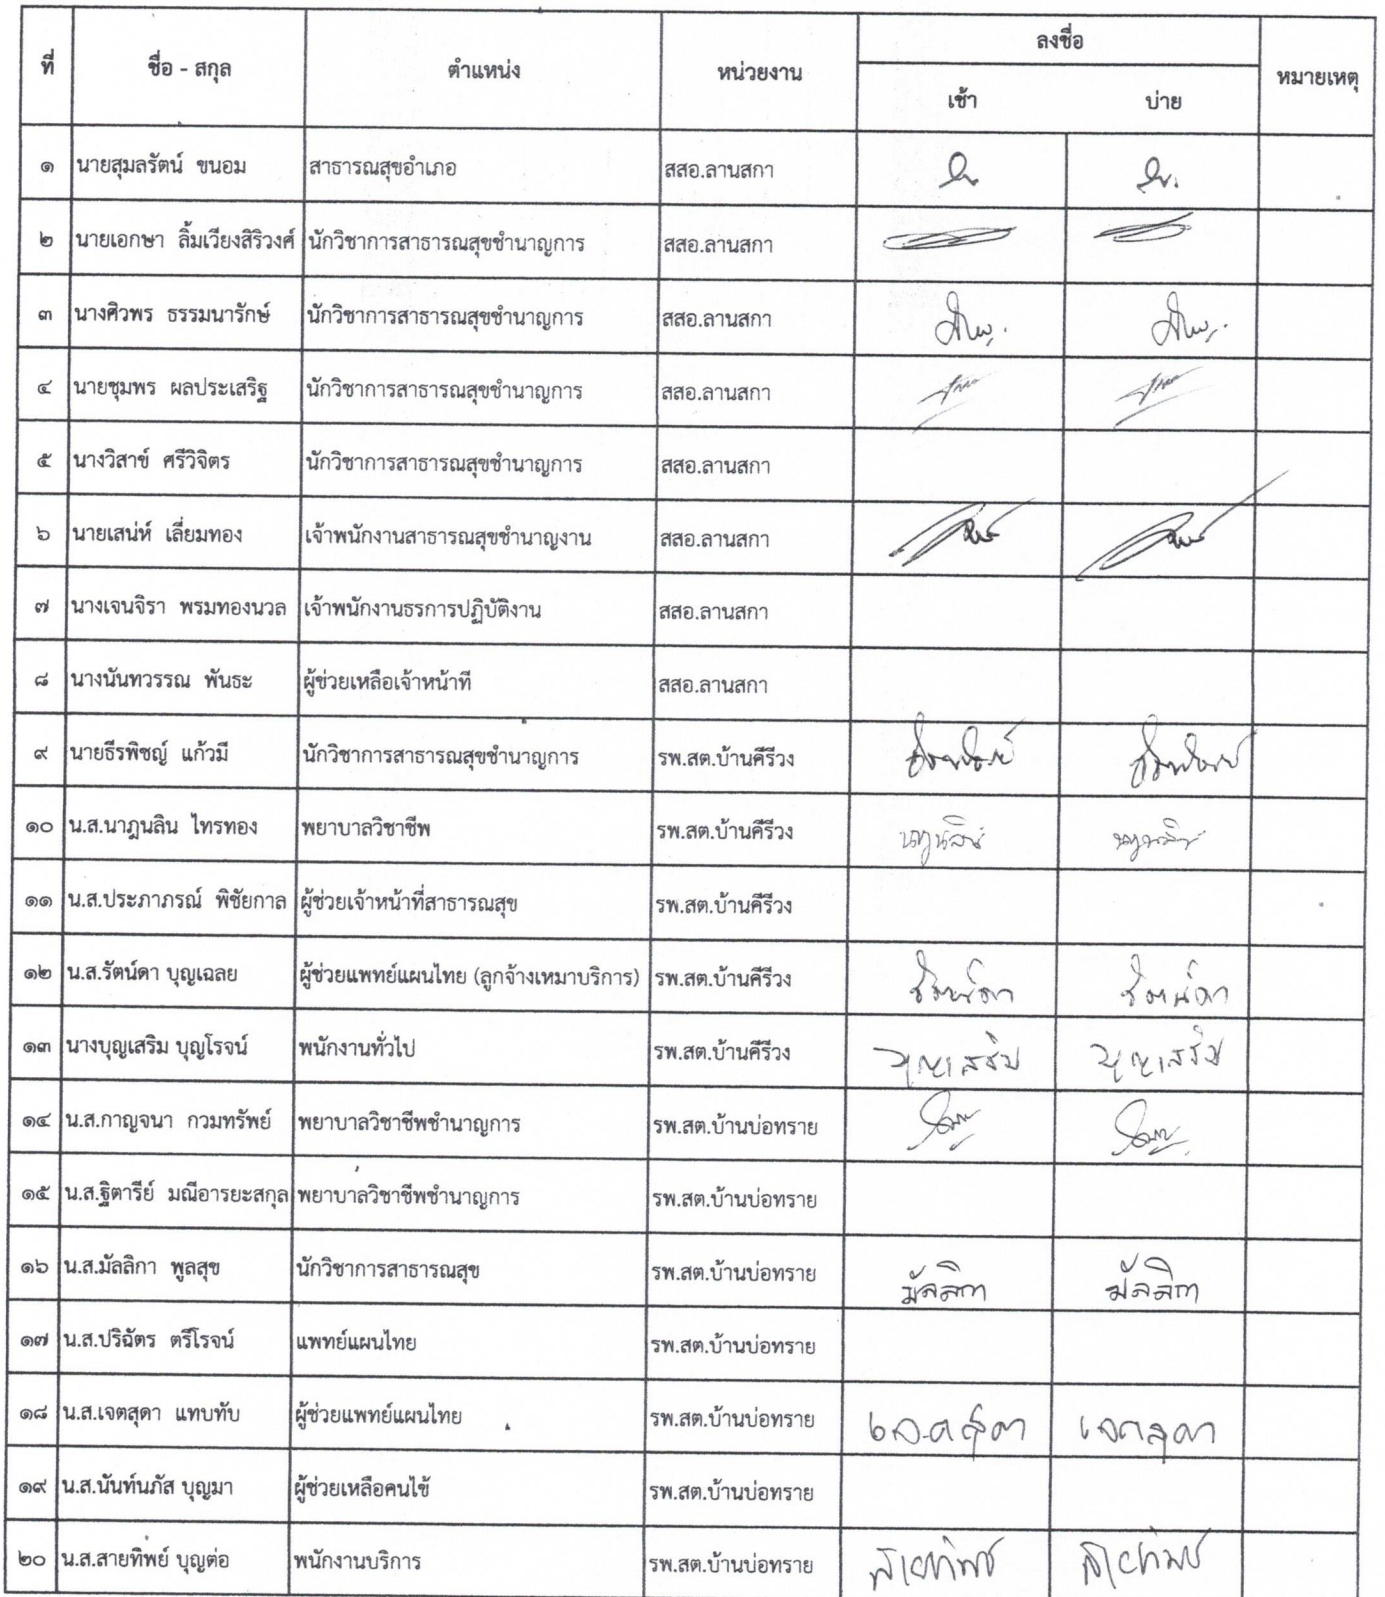 ที่ ชื่อ - สกุล ตำแหน่ง หน่วยงาน ลงชื่อ หมายเหตุ
เช้า บ่าย
๑ นายสุมลรัตน์ ขนอม สาธารณสุขอำเภอ สสอ.ลานสกา
๒ นายเอกษา ลิ้มเวียงสิริวงศ์ นักวิชาการสาธารณสุขชำนาญการ สสอ.ลานสกา
๓ นางศิวพร ธรรมนารักษ์ นักวิชาการสาธารณสุขชำนาญการ สสอ.ลานสกา
๔ นายชุมพร ผลประเสริฐ นักวิชาการสาธารณสุขชำนาญการ สสอ.ลานสกา
๕ นางวิสาข์ ศรีวิจิตร นักวิชาการสาธารณสุขชำนาญการ สสอ.ลานสกา
๖ นายเสน่ห์ เลี่ยมทอง เจ้าพนักงานสาธารณสุขชำนาญงาน สสอ.ลานสกา
๗ นางเจนจิรา พรมทองนวล เจ้าพนักงานธุรการปฏิบัติงาน สสอ.ลานสกา
๘ นางนันทวรรณ พันธะ ผู้ช่วยเหลือเจ้าหน้าที สสอ.ลานสกา
๙ นายธีรพิชญ์ แก้วมี นักวิชาการสาธารณสุขชำนาญการ รพ.สต.บ้านคีรีวง
๑๐ น.ส.นาฎนลิน ไทรทอง พยาบาลวิชาชีพ รพ.สต.บ้านคีรีวง นาฎนลิน นาฎนลิน
๑๑ น.ส.ประภาภรณ์ พิชัยกาล ผู้ช่วยเจ้าหน้าที่สาธารณสุข รพ.สต.บ้านคีรีวง
๑๒ น.ส.รัตน์ดา บุญเฉลย ผู้ช่วยแพทย์แผนไทย (ลูกจ้างเหมาบริการ) รพ.สต.บ้านคีรีวง รัตน์ดา รัตน์ดา
๑๓ นางบุญเสริม บุญโรจน์ พนักงานทั่วไป รพ.สต.บ้านคีรีวง บุญเสริม บุญเสริม
๑๔ น.ส.กาญจนา กวมทรัพย์ พยาบาลวิชาชีพชำนาญการ รพ.สต.บ้านบ่อทราย
๑๕ น.ส.ฐิตารีย์ มณีอารยะสกุล พยาบาลวิชาชีพชำนาญการ รพ.สต.บ้านบ่อทราย
๑๖ น.ส.มัลลิกา พูลสุข นักวิชาการสาธารณสุข รพ.สต.บ้านบ่อทราย มัลลิกา มัลลิกา
๑๗ น.ส.ปริฉัตร ตรีโรจน์ แพทย์แผนไทย รพ.สต.บ้านบ่อทราย
๑๘ น.ส.เจตสุดา แทบทับ ผู้ช่วยแพทย์แผนไทย รพ.สต.บ้านบ่อทราย เจตสุดา เจตสุดา
๑๙ น.ส.นันท์นภัส บุญมา ผู้ช่วยเหลือคนไข้ รพ.สต.บ้านบ่อทราย
๒๐ น.ส.สายทิพย์ บุญต่อ พนักงานบริการ รพ.สต.บ้านบ่อทราย สายทิพย์ สายทิพย์